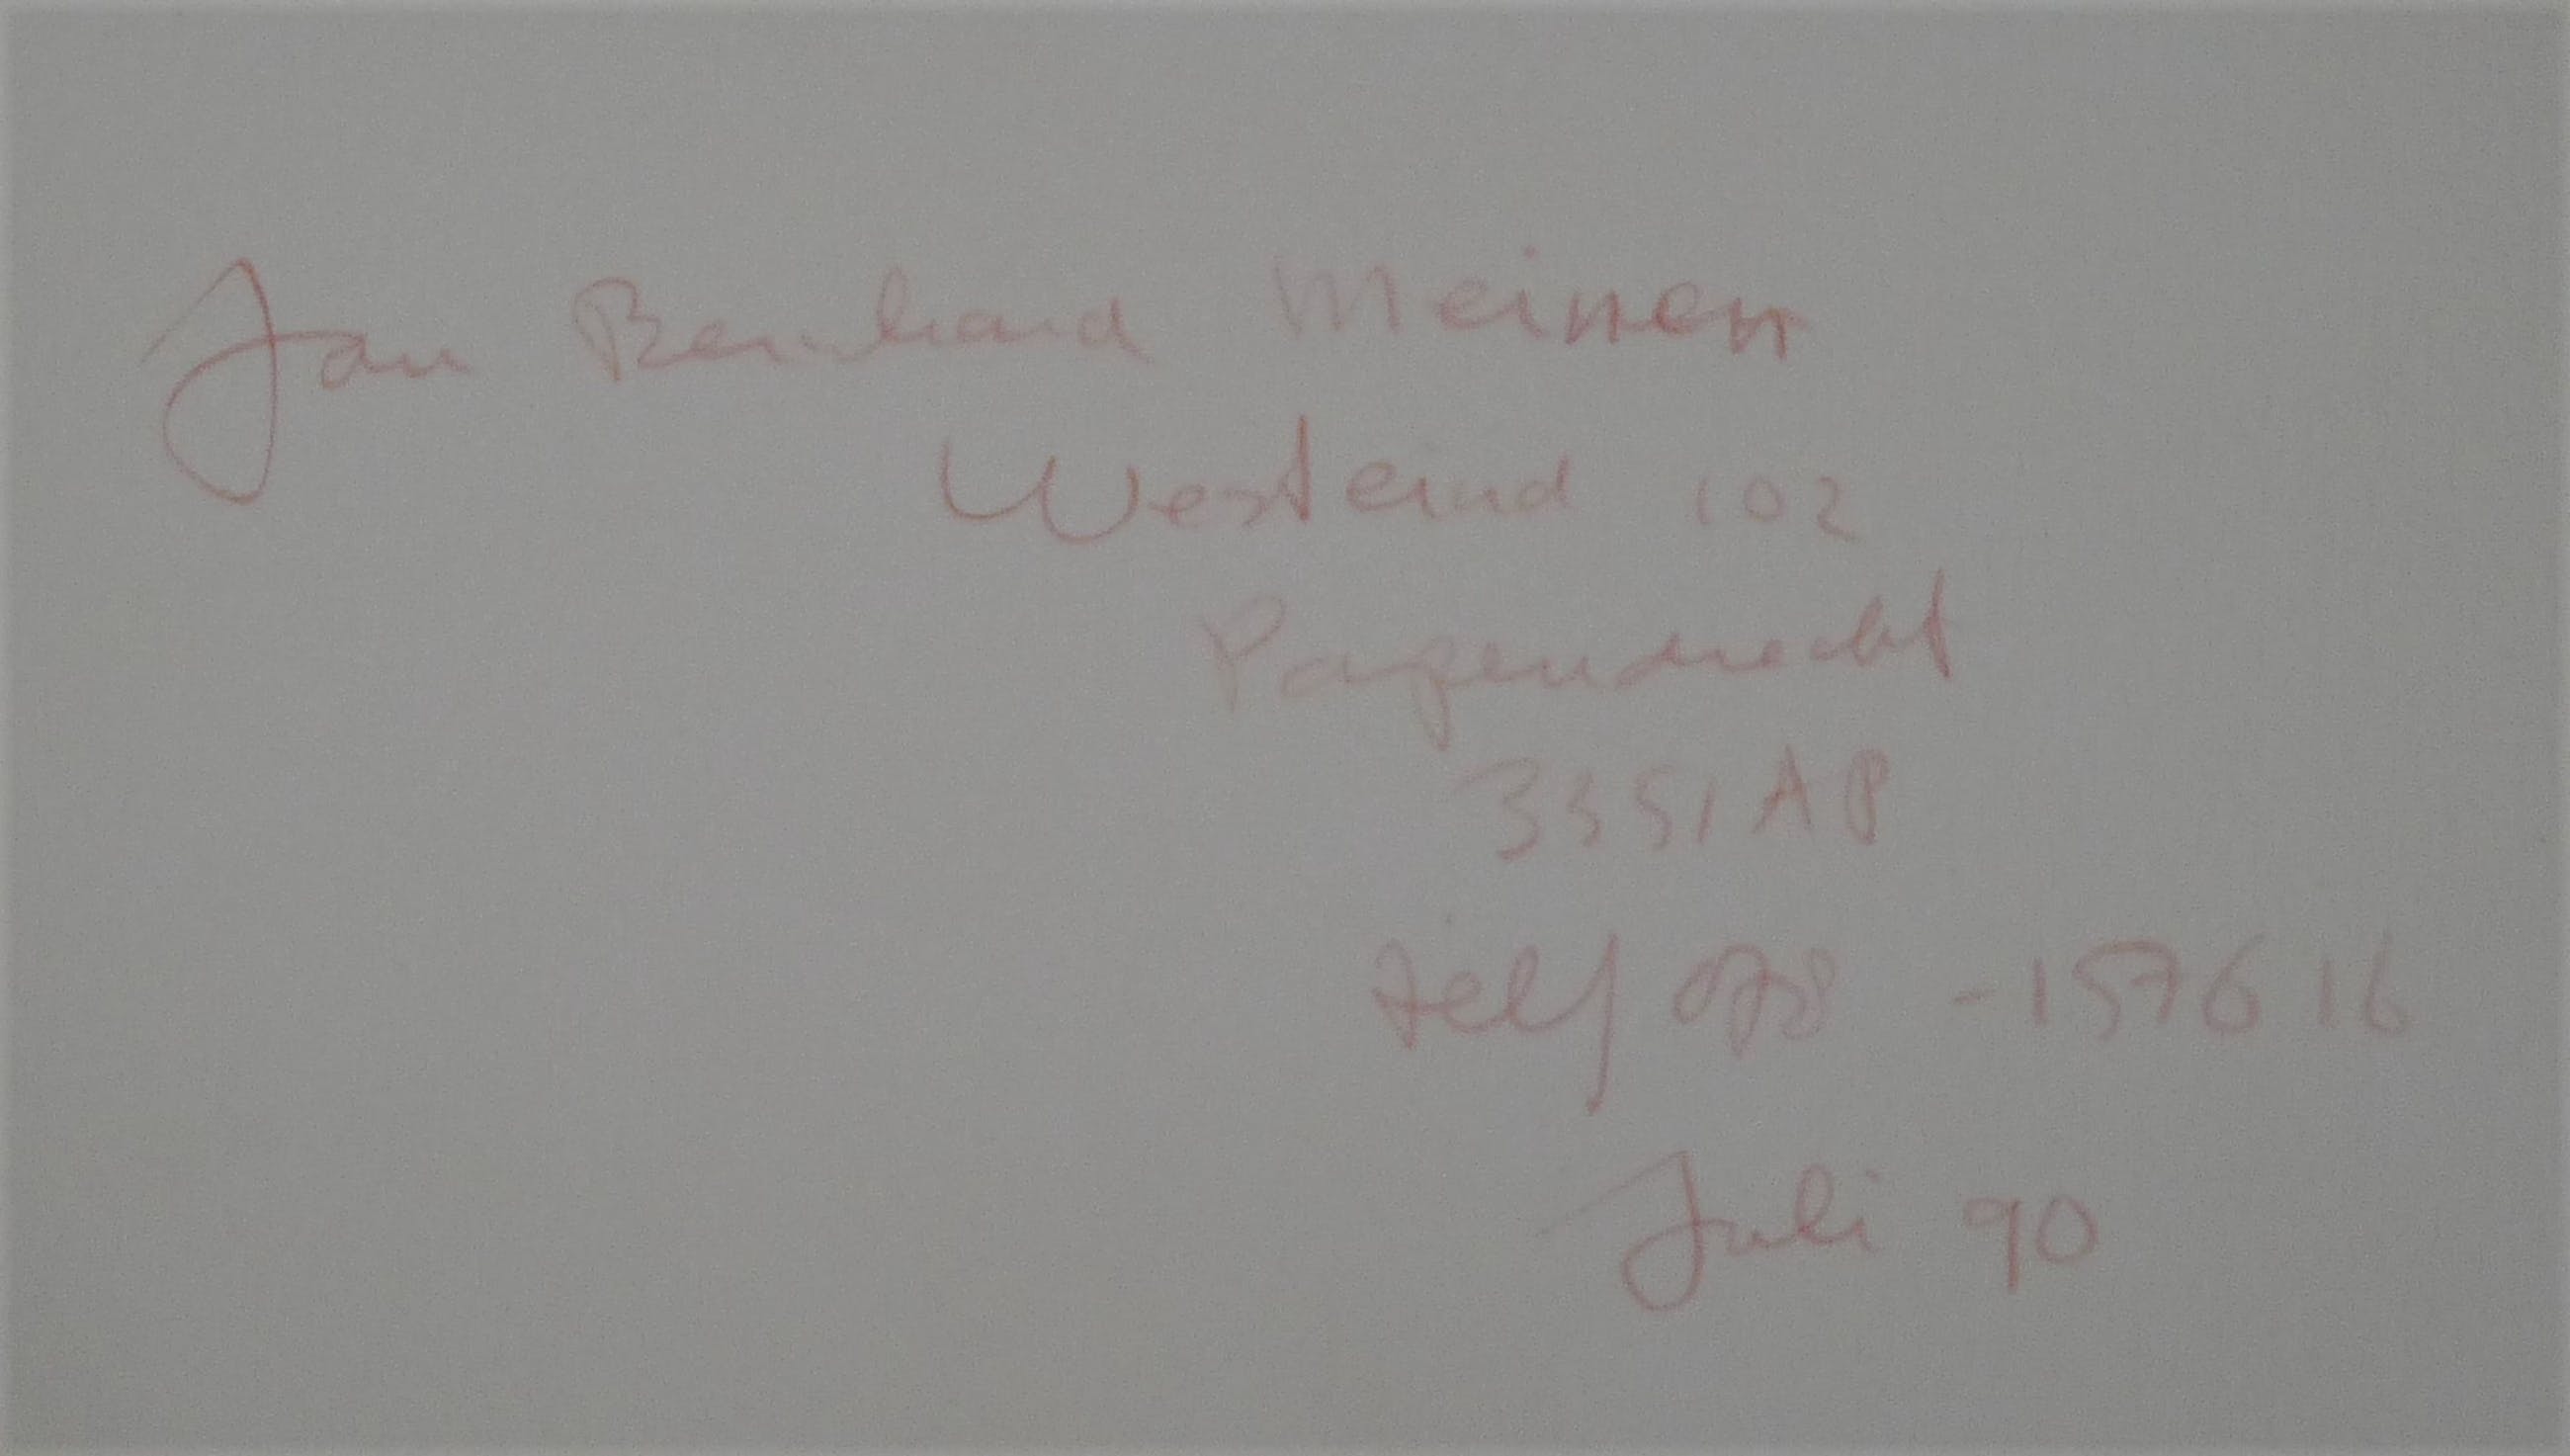 Jan Bernhard Meinen
Westeind 102
Papendrecht
3351AP
telf 078 - 157616
Juli 90